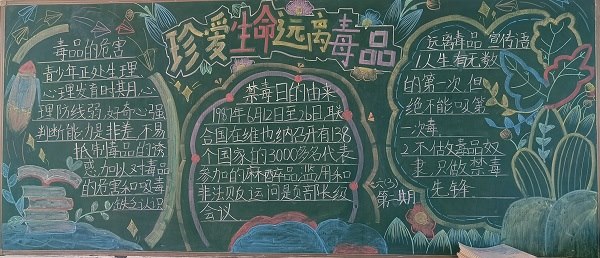 珍爱生命远离毒品
毒品的危害
青少年正处生理
心理发育时期,心
理防线弱,好奇心强
判断能力是非差,不易
抵制毒品的诱
惑,加以对毒品
的危害和吸毒
缺乏认识
禁毒日的由来
1987年6月12日至26日,联
合国在维也纳召开有138
个国家的3000多名代表
参加的麻醉品滥用和
非法贩运问题部长级
会议
六(3)
第一期
远离毒品 宣传语
1人生有无数
的第一次,但
绝不能吸第
一次毒
2.不做毒品奴
隶,只做禁毒
先锋